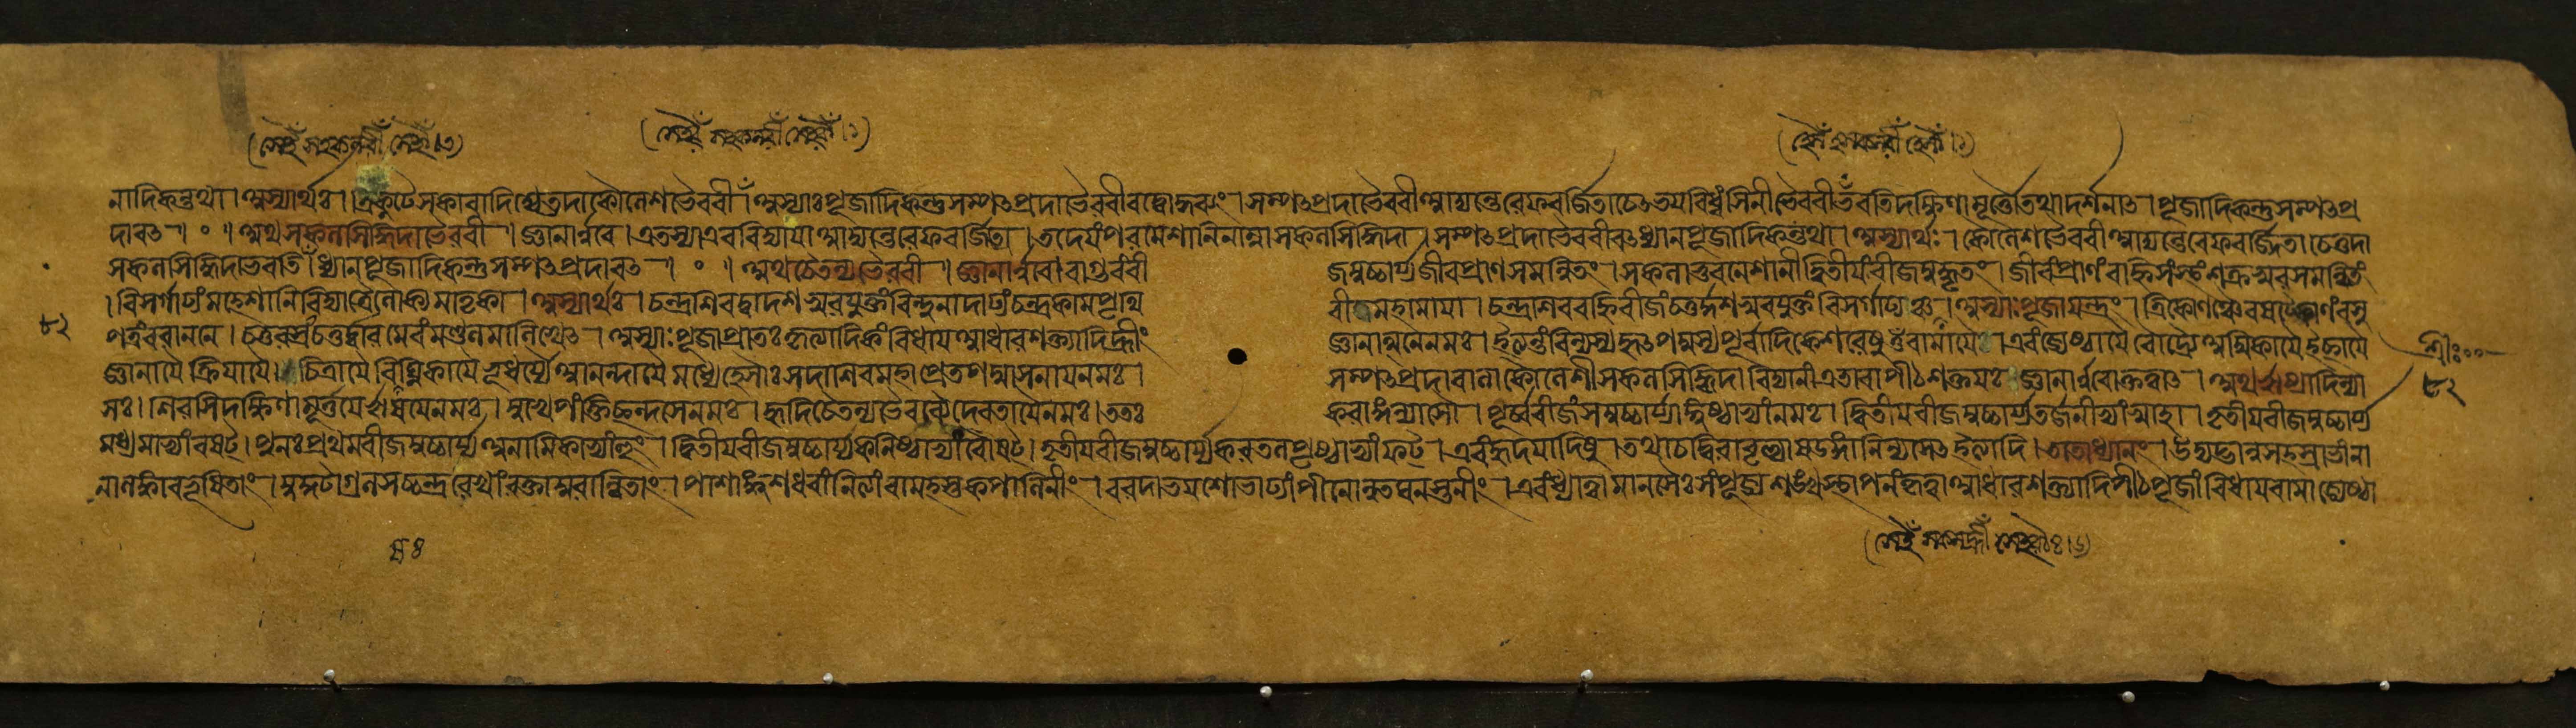 (সহৈঁ সহকলরীঁ সহৌঁ।৩)
(সহরৈঁ সহকলরীঁ সহরৌঁ।১)
নাদিকন্তুথা। অস্যার্থঃ। ত্রিকূটে সকারাদিশ্চেত্তদা কৌলেশভৈরবী। অস্যাঃপূজাদিকন্তু সম্পৎপ্রদাভৈরবীবদ্বোদ্ধব্যং। সম্পৎপ্রদাভৈরবী আদ্যন্তে রেফবর্জিতা চেৎ ভয়বিধ্বংসিনীভৈরবী ভবতি দক্ষিণামূর্ত্তৌ তথা দর্শনাৎ। পূজাদিকন্তু সম্পৎপ্র
দাবৎ। ॰ । অথ সকলসিদ্ধিদাভৈরবী। জ্ঞানার্ণবে। এতস্যা এব বিদ্যায়া আদ্যন্তে রেফবর্জিতে। তদেয়ং পরমেশানি নাম্না সকলসিদ্ধিদা। সম্পৎপ্রদাভৈরবীবৎ ধ্যানপূজাদিকন্তুথা। অস্যার্থঃ। কৌলেশভৈরবী আদ্যন্তে রেফবর্জিতা চেত্তদা
সকলসিদ্ধিদা ভবতি। ধ্যানপূজাদিকন্তু সম্পৎপ্রদাবৎ। ॰ । অথ চৈতন্যভৈরবী। জ্ঞানার্ণবে। বাগ্ভবং বীজমুচ্চার্য্য জীবপ্রাণসমন্বিতং। সকলা ভুবনেশানী দ্বিতীয়ং বীজমুদ্ধৃতং। জীবং প্রাণং বহ্নিসংস্থং শক্রস্বরসমন্বিতং
। বিসর্গাঢ্যং মহেশানি বিদ্যা ত্রৈলোক্যমাতৃকা। অস্যার্থঃ। চন্দ্রশিবদ্বাদশস্বরযুক্তং বিন্দুনাদাঢ্যং চন্দ্রকাম পৃথ্বীত্রমহামায়া। চন্দ্রশিববহ্নিবীজং চতুর্দ্দশস্বরযুক্তং বিসর্গাঢ্যঞ্চ। অস্যাঃপূজাযন্ত্রং। ত্রিকোণঞ্চৈব ষট্কোণং বসু
৮২ পত্রং বরাননে। চতুরস্রং চতুর্দ্বারমেবং মণ্ডলমালিখেৎ। অস্যাঃপূজা প্রাতঃকৃত্যাদিকং বিধায় আধারশক্ত্যাদি হ্রীং জ্ঞানাত্মনে নমঃ। ইত্যন্তং বিন্যস্য হৃৎপদ্মস্য পূর্ব্বাদিকেশরেষু ওঁ বামায়ৈ। এবং জ্যেষ্ঠায়ৈ রৌদ্র্যৈ অম্বিকায়ৈ ইচ্ছায়ৈ শ্রীঃ
জ্ঞানায়ৈ ক্রিয়ায়ৈ। চিত্রায়ৈ বিঘ্নিকায়ৈ আনন্দায়ৈ মধ্যে হেসৌঃ সদাশিবমহাপ্রেতপদ্মাসনায় নমঃ। সম্পৎপ্রদা বালা কৌলেশী সকলসিদ্ধিদা এতাসাং পীঠশক্তয়ঃ জ্ঞানার্ণবোক্তত্বাৎ। অথ ঋষ্যাদিন্যা ৮২
সঃ। শিরসি দক্ষিণামূর্ত্তয়ে ঋষয়ে নমঃ। মুখে পংক্তিচ্ছন্দসে নমঃ। হৃদি চৈতন্যভৈরব্যৈ দেবতায়ৈ নমঃ। ততঃ করাঙ্গন্যাসৌ। পূর্ব্ববীজং সমুচ্চার্য্য অঙ্গুষ্ঠাভ্যাং নমঃ। দ্বিতীয়বীজমুচ্চার্য্য তর্জনীভ্যাং স্বাহা। তৃতীয়বীজমুচ্চার্য্য
মধ্যমাভ্যাং বষট্। পুনঃ প্রথমবীজমুচ্চার্য্য অনামিকাভ্যাং হুং। দ্বিতীয়বীজমুচ্চার্য্য কনিষ্ঠাভ্যাং বৌষট্। তৃতীয়বীজমুচ্চার্য্য করতলপৃষ্ঠাভ্যাং ফট্। এবং হৃদয়াদিষু। তথা চ দ্বিরাবৃত্ত্যা ষডঙ্গানি ন্যসেৎ ইত্যাদি। ততো ধ্যানং। উদ্যদ্ভানুসহস্রাভাং না
নালঙ্কারভূষিতাং। মুকুটাগ্রলসচ্চন্দ্ররেখাং রক্তাম্বরান্বিতাং। পাশাঙ্কুশধরাং নিত্যাং বামহস্তকপালিনীং। বরদাভয়শোভাঢ্যাং পীনোন্নতঘনস্তনীং। এবং ধ্যাত্বা মানসৈঃ সংপূজ্য শঙ্খস্থাপনং কৃত্বা আধারশক্ত্যাদিপীঠপূজাং বিধায় বামা জ্যেষ্ঠা